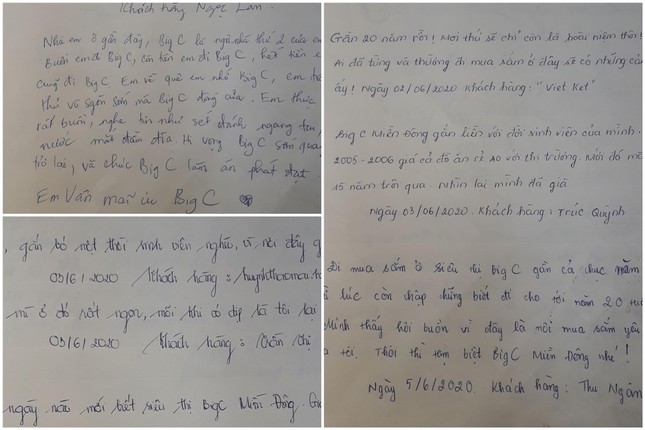 Khách hàng Ngọc Lan
Nhà em ở gần đây, Big C là ngôi nhà thứ 2 của em
Buồn em đi Big C, cần tiền em đi Big C, hết tiền e
cũng đi Big C. Em về quê em nhớ Big C, em
thứ vô sài gòn mà Big C đóng cửa. Em thực
rất buồn, nghe tin như sét đánh ngang tai,
nước mắt đầm đìa. Hi vọng Big C sớm qua
trở lại, và chúc Big C làm ăn phát đạt
Em vẫn mãi iu Big C
, gắn bó một thời sinh viên nghèo, vì nơi đây g
03/6/2020 Khách hàng: huynhthaomai.
mì ở đó rất ngon, mỗi khi có dịp là tôi lại
03/6/2020 Khách hàng: Trần Thị
ngày nào mới biết siêu thị BigC Miền Đông.
Gần 20 năm rồi! Mọi thứ sẽ chỉ còn là hoài niệm thôi!
Ai đã từng và thường đi mua sắm ở đây sẽ có những cả
ấy! Ngày 02/06/2020 Khách hàng: "Viet Ket"
Big C Miền Đông gắn liền với đời sinh viên của mình.
2005-2006 giá cả đồ ăn rẻ so với thị trường. Mới đó mà
15 năm trôi qua. Nhìn lại mình đã già
Ngày 03/06/2020. Khách hàng: Trúc Quỳnh
Đi mua sắm ở siêu thị big C gần cả chục năm
lúc còn chập chững biết đi cho tới năm 20 tu
Mình thấy hơi buồn vì đây là nơi mua sắm yêu
a tôi. Thôi thì tạm biệt BigC Miền Đông nhé!
Ngày 5/6/2020. Khách hàng: Thu Ngân